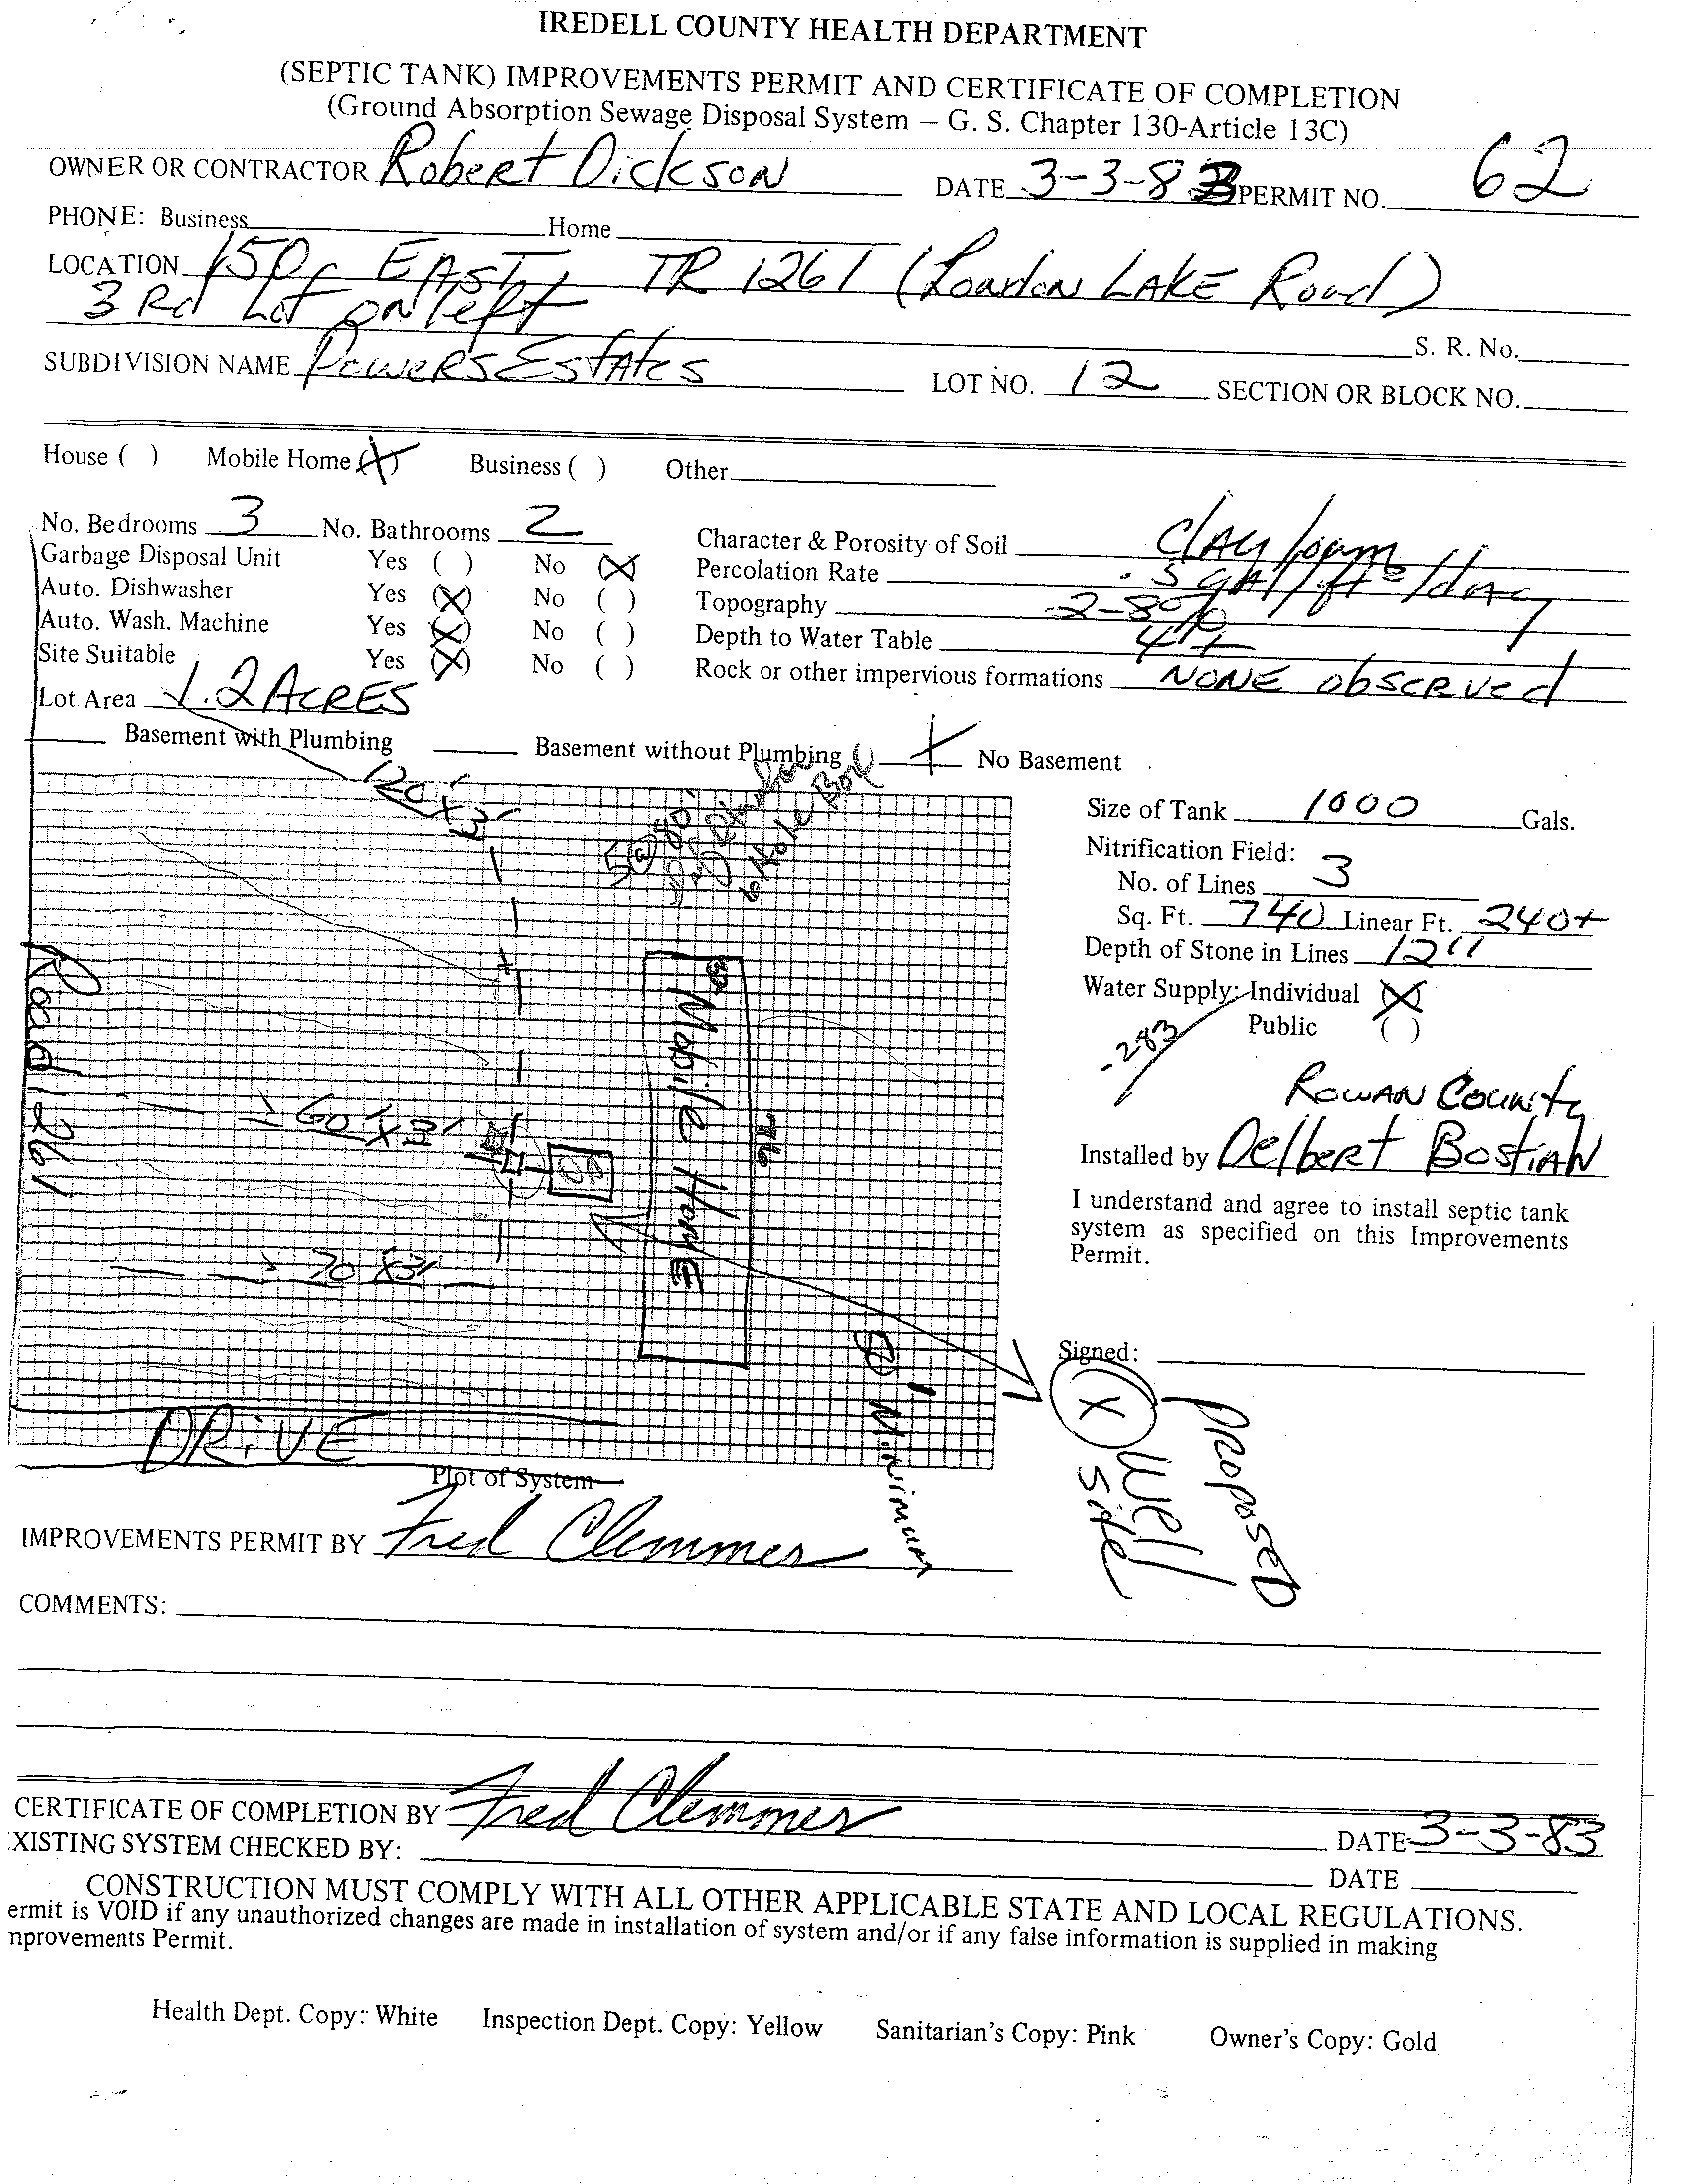 IREDELL COUNTY HEALTH DEPARTMENT
(SEPTIC TANK) IMPROVEMENTS PERMIT AND CERTIFICATE OF COMPLETION
(Ground Absorption Sewage Disposal System – G. S. Chapter 130-Article 13C)
OWNER OR CONTRACTOR Robert Dickson DATE 3-3-83 PERMIT NO. 62
PHONE: Business Home
LOCATION 150 EAST, TR 1261 (London LAKE Road)
3 Rd Lot on left
S. R. No.
SUBDIVISION NAME Powers Estates LOT NO. 12 SECTION OR BLOCK NO.
House ( ) Mobile Home (X) Business ( ) Other
No. Bedrooms 3 No. Bathrooms 2 Character & Porosity of Soil CLAY loam
Garbage Disposal Unit Yes ( ) No (X) Percolation Rate .3 GAl/ft²/day
Auto. Dishwasher Yes (X) No ( ) Topography 2-8%
Auto. Wash. Machine Yes (X) No ( ) Depth to Water Table 4ft
Site Suitable Yes (X) No ( ) Rock or other impervious formations NONE observed
Lot Area 1.2 ACRES
Basement with Plumbing Basement without Plumbing X No Basement
120'x3'
50'
Size of Tank 1000 Gals.
Nitrification Field:
No. of Lines 3
Sq. Ft. 740 Linear Ft. 240+
Depth of Stone in Lines 12"
Water Supply: Individual (X)
Public ( )
-283
Road 1261
Mobile Home
60'x3'
70'x3'
DRIVE
Minimum
ROWAN County
Installed by Delbert Bostian
I understand and agree to install septic tank
system as specified on this Improvements
Permit.
Signed:
X
proposed
Well
Site
Plot of System
IMPROVEMENTS PERMIT BY Fred Clemmer
COMMENTS:
CERTIFICATE OF COMPLETION BY Fred Clemmer DATE 3-3-83
XISTING SYSTEM CHECKED BY: DATE
CONSTRUCTION MUST COMPLY WITH ALL OTHER APPLICABLE STATE AND LOCAL REGULATIONS.
ermit is VOID if any unauthorized changes are made in installation of system and/or if any false information is supplied in making
nprovements Permit.
Health Dept. Copy: White Inspection Dept. Copy: Yellow Sanitarian's Copy: Pink Owner's Copy: Gold